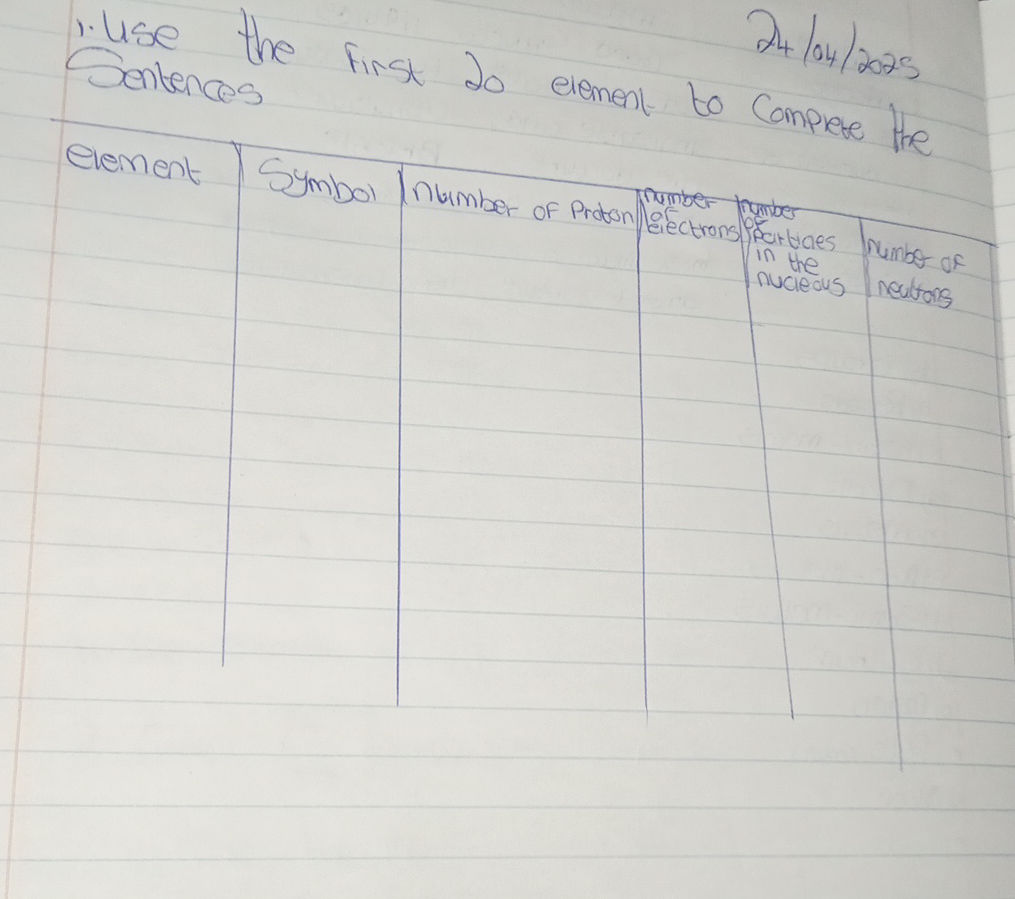 1. Use the first 20 element to Complete the
Sentences
24/04/2025
element
Symbol
number of Proton
number
of
electrons
number
of
Particles
in the
nucleous
number of
neutrons